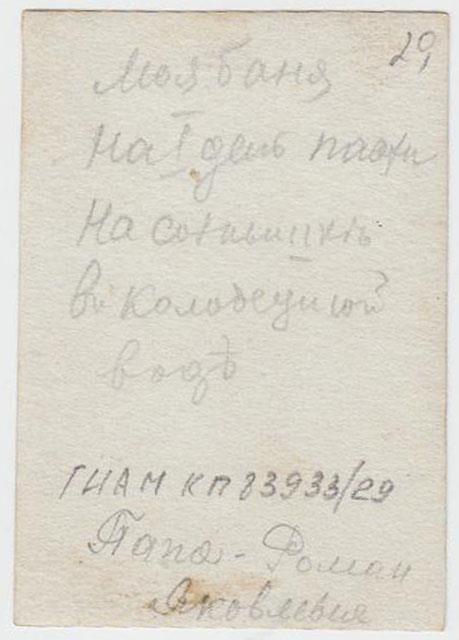 29
Моя баня
На I день пасхи
На солнышкѣ
въ колодезной
водѣ
ГНАМ КП 83933/29
Папа - Роман
Яковлевич